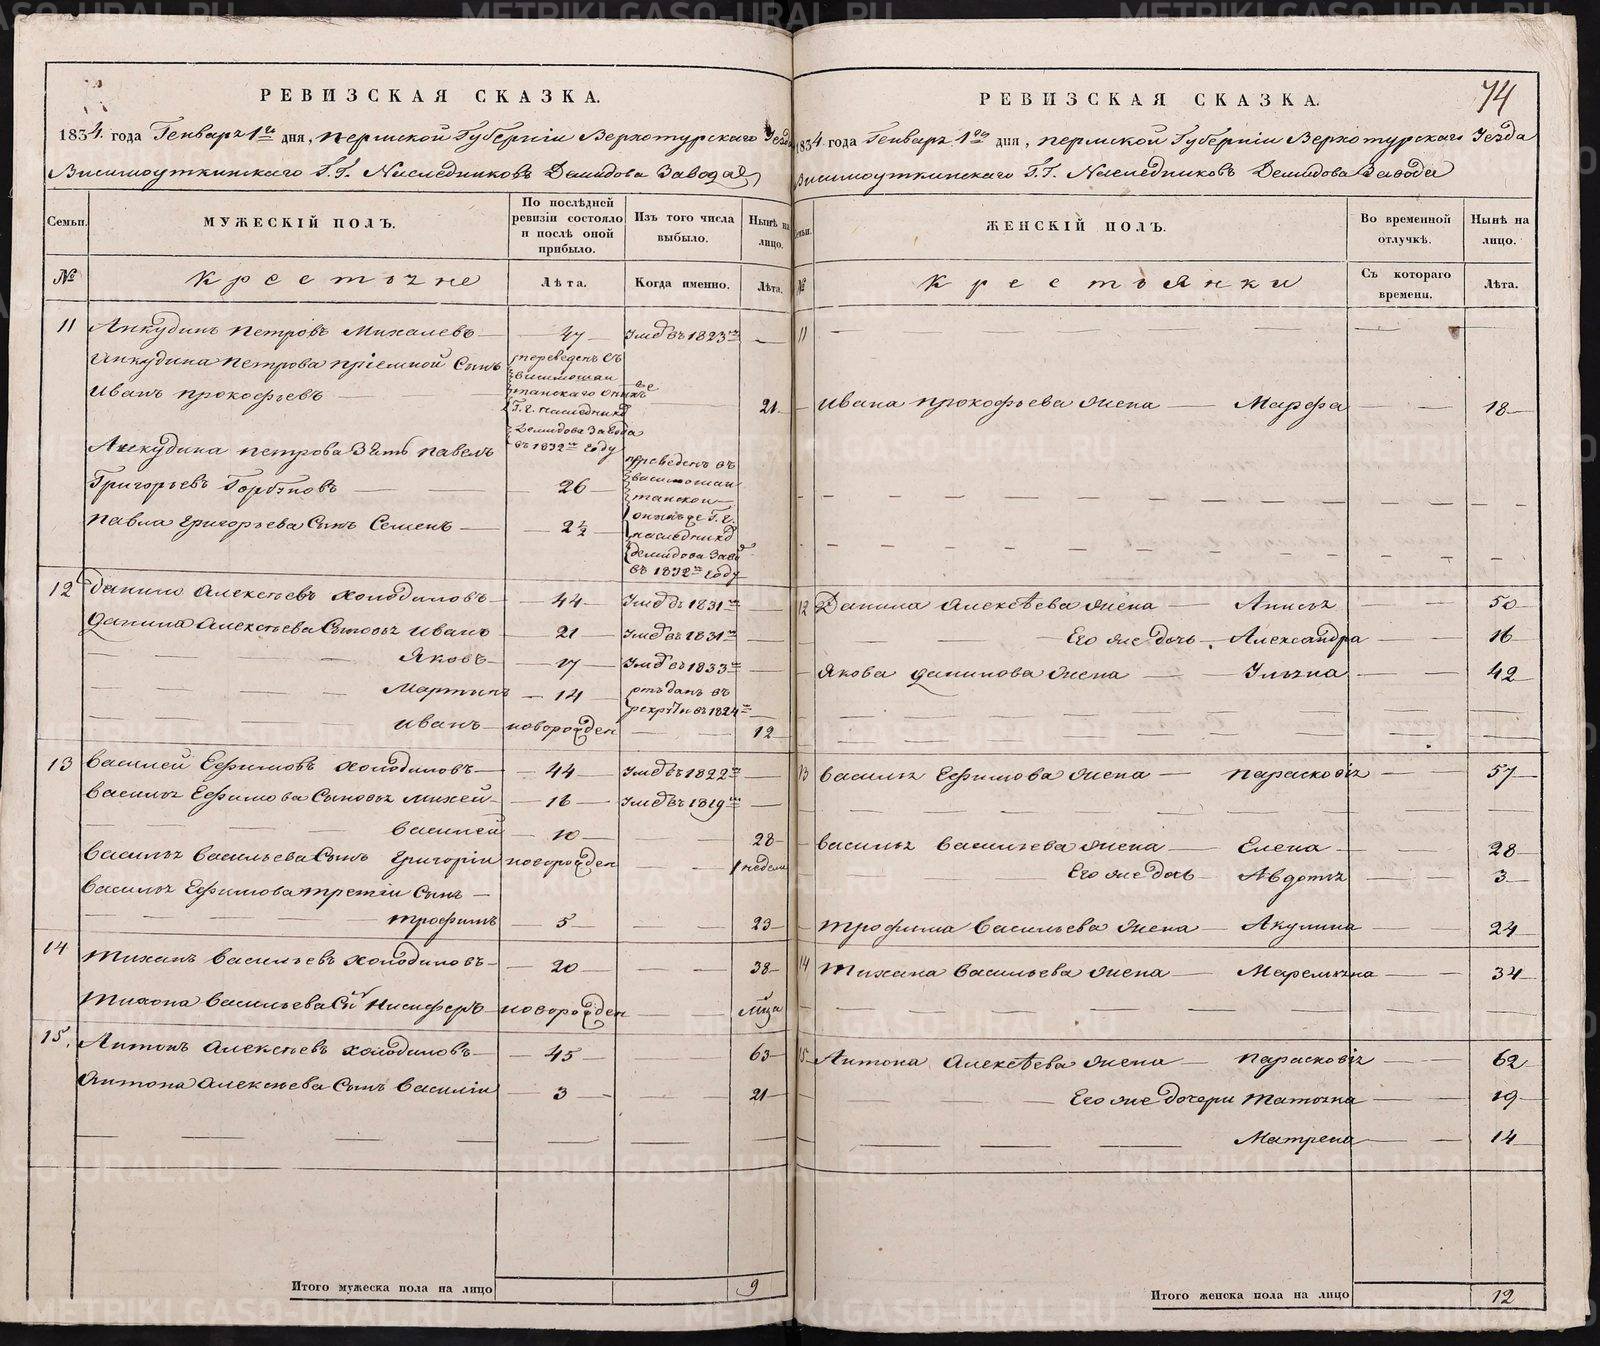 РЕВИЗСКАЯ СКАЗКА.
1834. года Генваря 1го дня, Пермской Губерніи Верхотурскаго Уезда
Висимоуткинскаго Г.Г. Наследниковъ Демидова Завода
Семьи.
МУЖЕСКІЙ ПОЛЪ.
По послѣдней ревизіи состояло и послѣ оной прибыло.
Изъ того числа выбыло.
Нынѣ на лицо.
№
Крестьяне
Лѣта.
Когда именно.
Лѣта.
11 Анкудинъ Петровъ Михалевъ 47 Умеръ въ 1823мъ
Анкудина Петрова пріемной Сынъ
Иванъ Прокофьевъ 21
переведенъ съ
висимошай
танскаго Оныхъ
же
Г.г. наследник
Демидова Завода
въ 1832м году
Анкудина Петрова Зять Павелъ
Григорьевъ Горбуновъ 26
Павла Григорьева Сынъ Семенъ 2½
переведенъ въ
висимошай
танской
оныхъ же Г.г.
наследник
Демидова Завод
въ 1832м году
12 Данило Алексѣевъ Холодиловъ 44 Умеръ въ 1831м
Данила Алексѣева Сыновья Иванъ 21 Умеръ въ 1831м
Яковъ 17 Умеръ въ 1833м
Мартынъ 14 отъданъ въ
рекруты въ 1824м
Иванъ новорожден 12
13 Василей Ефимовъ Холодиловъ 44 Умеръ въ 1822м
Василья Ефимова Сыновья Михей 16 Умеръ въ 1819м
Василей 10 28
Василья Васильева Сынъ Григоріи новорожден 1 недели
Василья Ефимова третіи Сынъ
Трофимъ 5 23
14 Тиханъ Васильевъ Холодиловъ 20 38
Тихона Васильева Сынъ Никифоръ новорожден мѣца
15. Антонъ Алексѣевъ Холодиловъ 45 63
Антона Алексѣева Сынъ Василіи 3 21
Итого мужеска пола на лицо 9
74
РЕВИЗСКАЯ СКАЗКА.
1834 года Генваря 1го дня, Пермской Губерніи Верхотурскаго Уезда
Висимоуткинскаго Г.Г. Наследниковъ Демидова Завода
Семьи.
ЖЕНСКІЙ ПОЛЪ.
Во временной отлучкѣ.
Нынѣ на лицо.
№
Крестьянки
Съ котораго времени.
Лѣта.
11
Ивана Прокофьева жена Марфа 18
12 Данила Алексѣева жена Анисья 50
Его же дочь Александра 16
Якова Данилова жена Ульяна 42
13 Василья Ефимова жена Парасковія 57
Василья Васильева жена Елена 28
Его же дочь Авдотья 3
Трофима Васильева жена Акулина 24
14 Тихана Васильева жена Маремьяна 34
15 Антона Алексѣева жена Парасковія 62
Его же дочери Татьяна 19
Матрена 14
Итого женска пола на лицо 12
METRIKI.GASO-URAL.RU